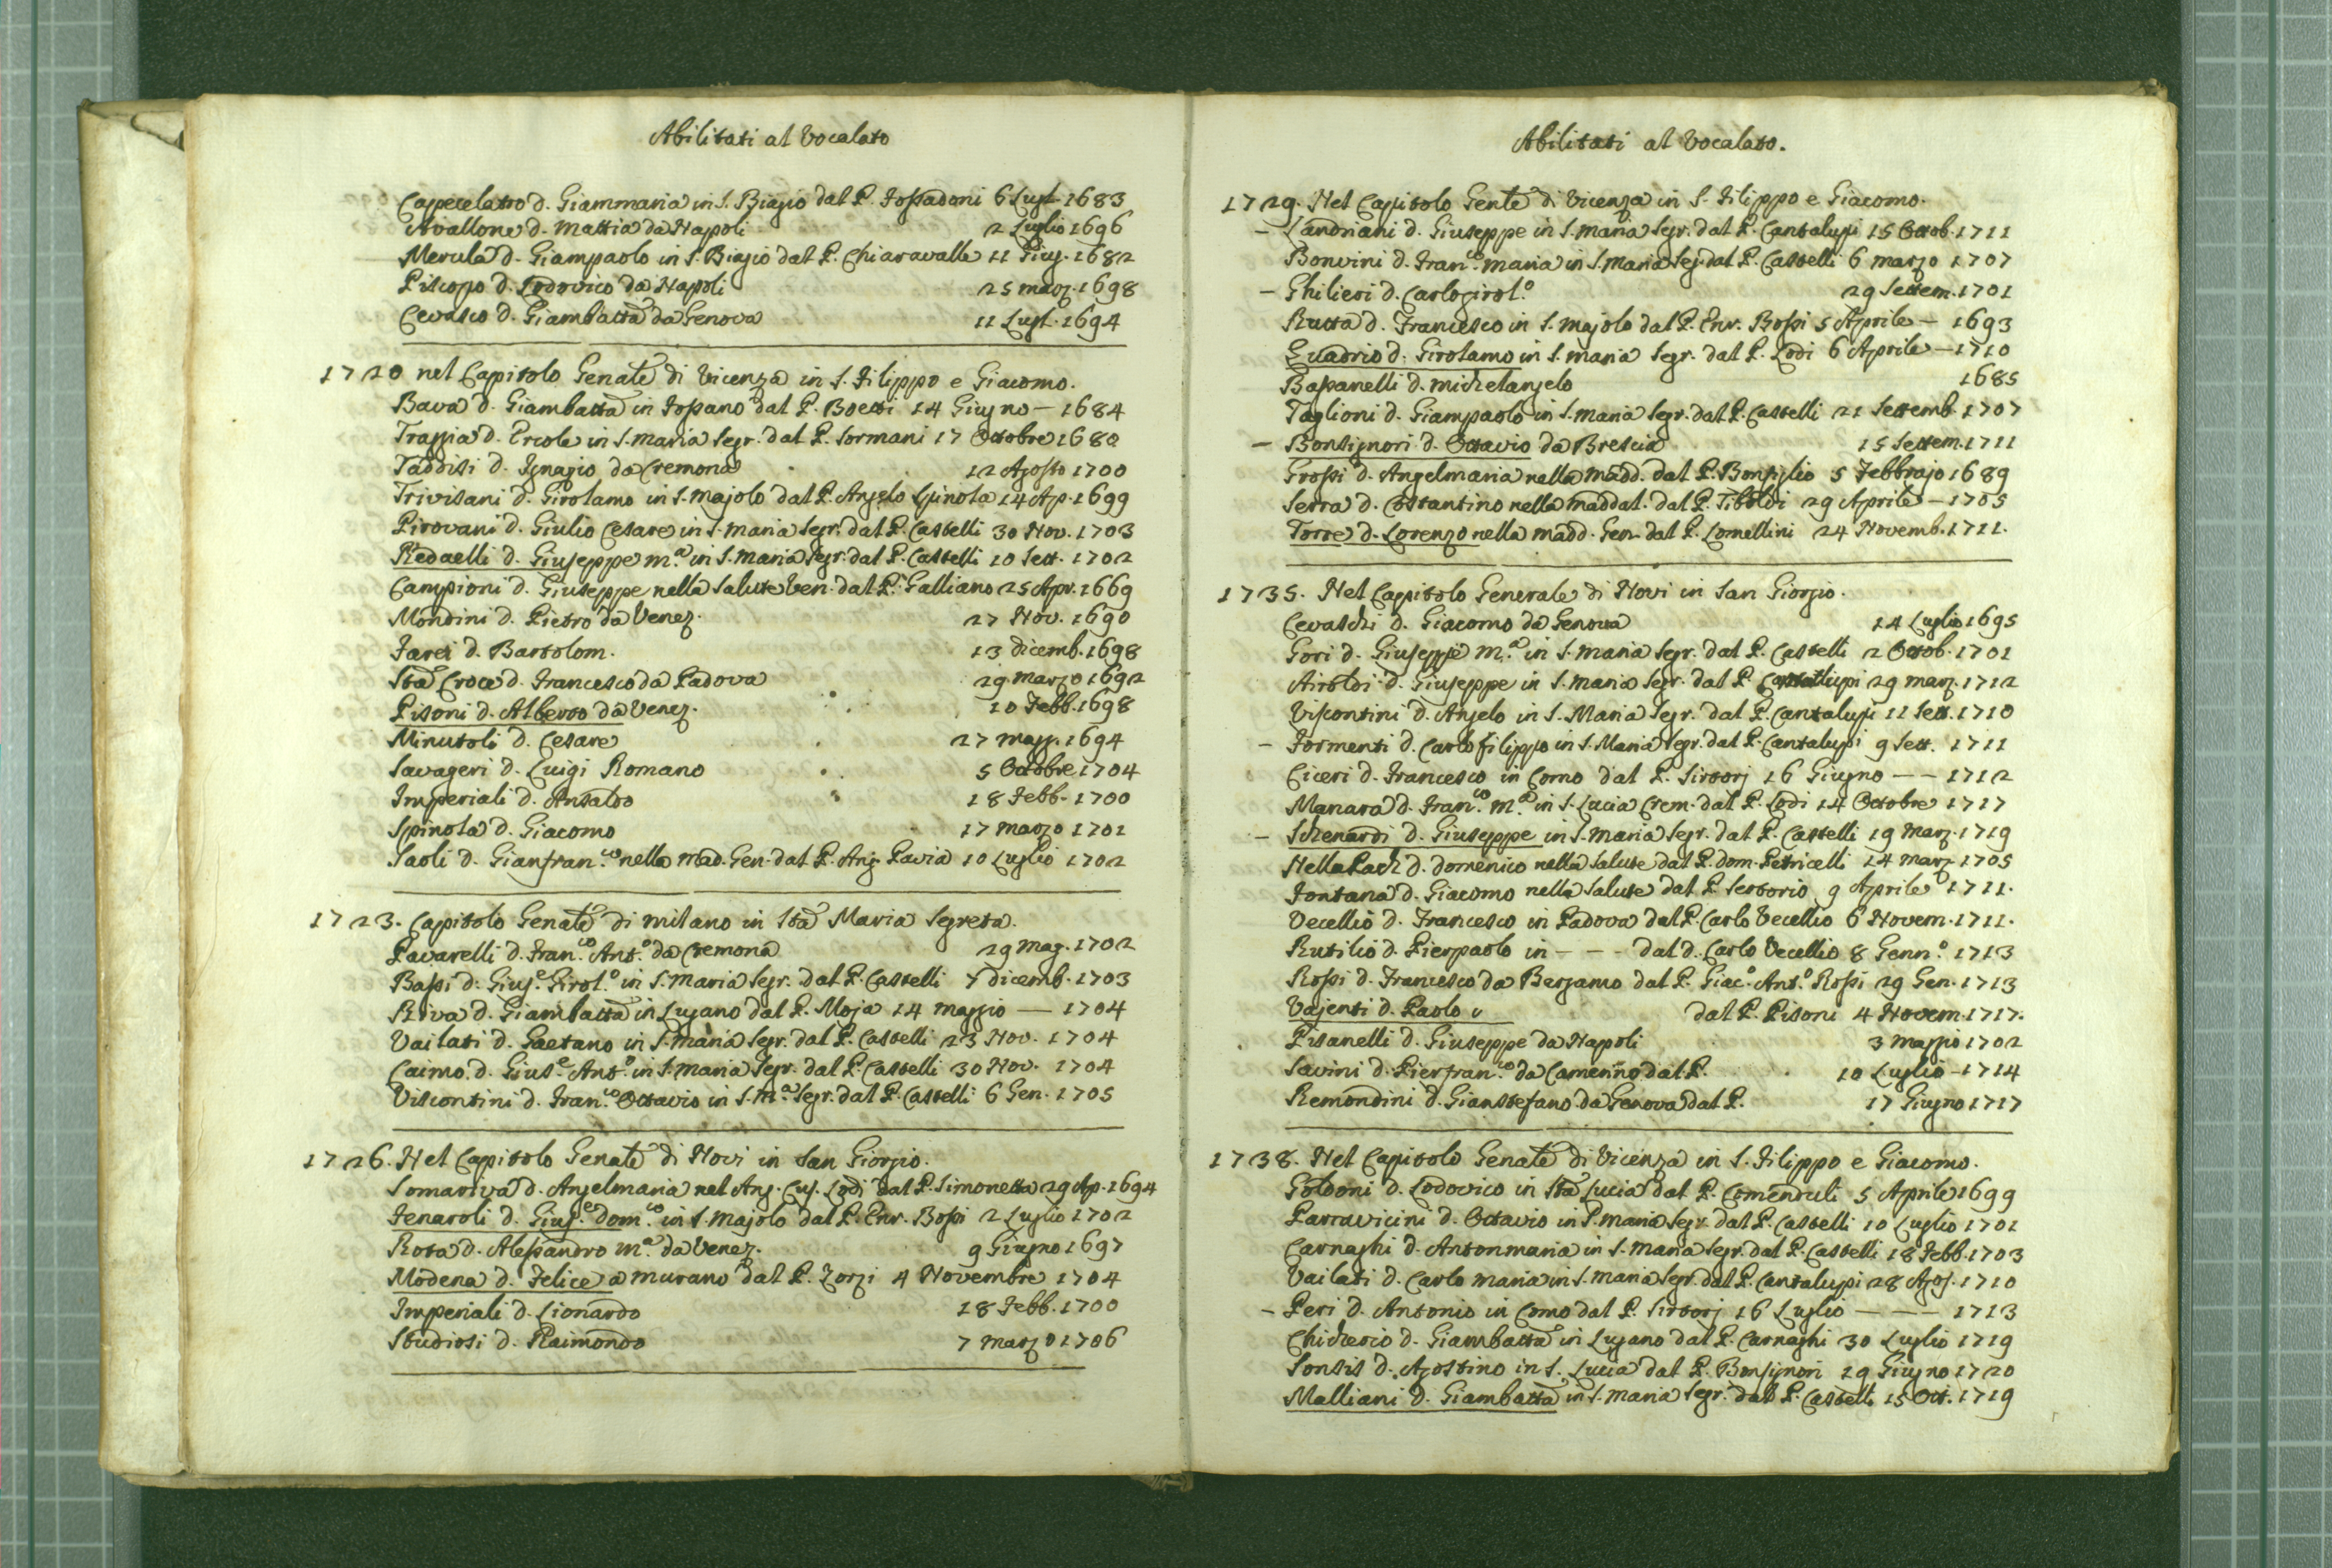 Abilitati al Vocalato
Capecelatro d. Giammaria in S. Biagio dal P. Fossadoni 6 Lugl. 1683
Avallone d. Mattia da Napoli 2 Luglio 1696
Merula d. Giampaolo in S. Biagio dal P. Chiaravalle 11 Giug. 1682
Piscopo d. Lodovico da Napoli 25 marz. 1698
Cevasco d. Giambatta da Genova 11 Lugl. 1694
1720 nel Capitolo Genale di Vicenza in S. Filippo e Giacomo.
Bava d. Giambatta in Fossano dal P. Boetti 14 Giugno – 1684
Trappia d. Ercole in S. Maria Segr. dal P. Sormani 17 Ottobre 1682
Taddisi d. Ignazio da Cremona 12 Agosto 1700
Trivisani d. Girolamo in S. Majolo dal P. Angelo Spinola 14 Ap. 1699
Pirovani d. Giulio Cesare in S. Maria Segr. dal P. Castelli 30 Nov. 1703
Redaelli d. Giuseppe m.a in S. Maria Segr. dal P. Castelli 10 Sett. 1702
Campioni d. Giuseppe nella Salute Ven. dal P. Galliano 25 Apr. 1669
Mondini d. Pietro da Venez. 27 Nov. 1690
d. Bartolom. 13 dicemb. 1698
Sta Croce d. Francesco da Padova 29 marzo 1692
Pisoni d. Alberto da Venez. 10 Febb. 1698
Minutoli d. Cesare 27 magg. 1694
Savageri d. Luigi Romano 5 Ottobre 1704
Imperiali d. Ansaldo 18 Febb. 1700
Spinola d. Giacomo 17 marzo 1701
Saoli d. Gianfran.co nella Mad. Gen. dal P. Ang. Pavia 10 Luglio 1702
1723. Capitolo Genale di Milano in Sta Maria Segreta.
Pavarelli d. Fran.co Ant.o da Cremona 29 Mag. 1702
Bassi d. Gius.e Girol.o in S. Maria Segr. dal P. Castelli 7 dicemb. 1703
Riva d. Giambatta in Lugano dal P. Moja 14 Maggio — 1704
Vailati d. Gaetano in S. Maria Segr. dal P. Castelli 23 Nov. 1704
Caimo d. Gius.e Ant.o in S. Maria Segr. dal P. Castelli 30 Nov. 1704
Viscontini d. Fran.co Ottavio in S. M.a Segr. dal P. Castelli 6 Gen. 1705
1726. Nel Capitolo Genale di Novi in San Giorgio.
Somariva d. Angelmaria nel Ang. Cus. Lodi dal P. Simonetta 29 Ap. 1694
Fenaroli d. Gius.e Dom.co in S. Majolo dal P. Enr. Bossi 2 Luglio 1702
Rota d. Alessandro m.a da Venez. 9 Giugno 1697
Modena d. Felice a Murano dal P. Zorzi 4 Novembre 1704
Imperiali d. Lionardo 18 Febb. 1700
Studiosi d. Raimondo 7 marzo 1706
Abilitati al Vocalato.
1729. Nel Capitolo Genle di Vicenza in S. Filippo e Giacomo.
– Landriani d. Giuseppe in S. Maria Segr. dal P. Cantalupi 15 Ottob. 1711
Bonvini d. Fran.co Maria in S. Maria Seg. dal P. Castelli 6 marzo 1707
– Ghilieri d. Carlogirol.o 29 Settem. 1701
Rutta d. Francesco in S. Majolo dal P. Enr. Bossi 5 Aprile – 1693
Quadrio d. Girolamo in S. Maria Segr. dal P. Lodi 6 Aprile – 1710
Bassanelli d. Michelangelo 1685
Taglioni d. Giampaolo in S. Maria Segr. dal P. Castelli 21 Settemb. 1707
– Bonsignori d. Ottavio da Brescia 15 Settem. 1711
Grossi d. Angelmaria nella Madd. dal P. Bonfiglio 5 Febbrajo 1689
Serra d. Costantino nella Maddal. dal P. Tiboldi 29 Aprile – 1705
Torre d. Lorenzo nella Madd. Gen. dal P. Lomellini 24 Novemb. 1711.
1735. Nel Capitolo Generale di Novi in San Giorgio.
Cevaschi d. Giacomo da Genova 14 Luglio 1695
Gori d. Giuseppe M.a in S. Maria Segr. dal P. Castelli 2 Ottob. 1701
Airoldi d. Giuseppe in S. Maria Segr. dal P. Cantalupi 29 marz. 1712
Viscontini d. Angelo in S. Maria Segr. dal P. Cantalupi 11 Sett. 1710
– Formenti d. Carlo filippo in S. Maria Segr. dal P. Cantalupi 9 Sett. 1711
Ciceri d. Francesco in Como dal P. Sirtorj 16 Giugno – – 1712
Manara d. Fran.co M.a in S. Lucia Crem. dal P. Lodi 14 Ottobre 1717
– Schenardi d. Giuseppe in S. Maria Segr. dal P. Castelli 19 Marz. 1719
Nella Pach d. Domenico nella Salute dal P. Dom. Petricelli 14 marz. 1705
Fontana d. Giacomo nella Salute dal P. Sertorio 9 Aprile 1711.
Vecellio d. Francesco in Padova dal P. Carlo Vecellio 6 Novem. 1711.
Rutilio d. Pierpaolo in – – – dal d. Carlo Vecellio 8 Genn.o 1713
Rossi d. Francesco da Bergamo dal P. Giac.o Ant.o Rossi 29 Gen. 1713
Vajenti d. Paolo dal P. Pisoni 4 Novem. 1717.
Pisanelli d. Giuseppe da Napoli 3 maggio 1702
Savini d. Pierfran.co da Camerino dal P. 10 Luglio – 1714
Remondini d. Gianstefano da Genova dal P. 17 Giugno 1717
1738. Nel Capitolo Genale di Vicenza in S. Filippo e Giacomo.
Goldoni d. Lodovico in Sta Lucia dal P. Comenduli 5 Aprile 1699
Parravicini d. Ottavio in S. Maria Segr. dal P. Castelli 10 Luglio 1701
Carnaghi d. Antonmaria in S. Maria Segr. dal P. Castelli 18 Febb. 1703
Vailati d. Carlo Maria in S. Maria Segr. dal P. Cantalupi 28 Agos. 1710
– Peri d. Antonio in Como dal P. Sirtorj 16 Luglio – – – 1713
Chicherio d. Giambatta in Lugano dal P. Carnaghi 30 Luglio 1719
Sonsis d. Agostino in S. Lucia dal P. Bonsignori 29 Giugno 1720
Malliani d. Giambatta in S. Maria Segr. dal P. Castelli 15 Ott. 1719